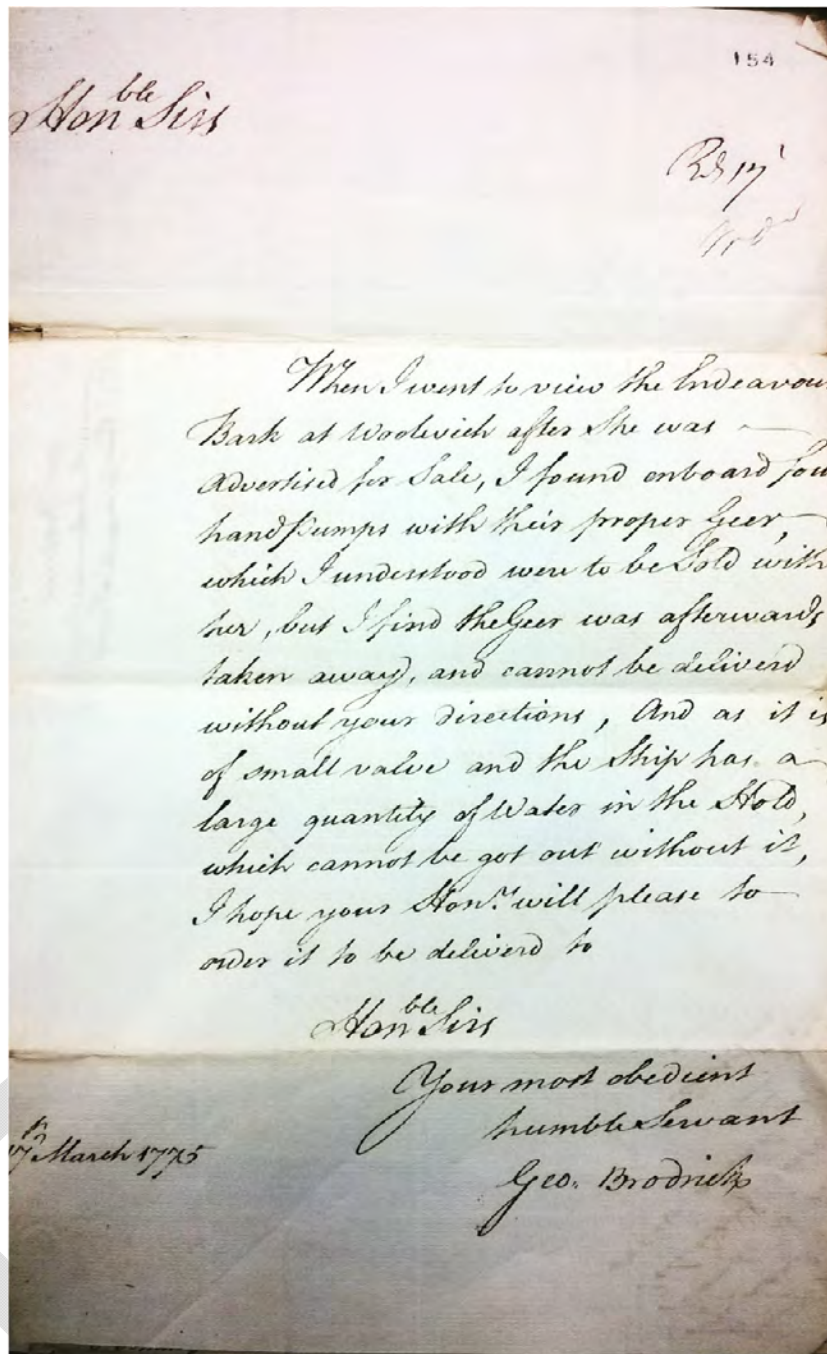 154
Hon^ble Sirs
Rd 17
When I went to view the Endeavou
Bark at Woolwich after She was —
Advertised for Sale, I found onboard fou
hand Pumps with their proper Geer, —
which I understood were to be Sold with
her, but I find the Geer was afterwards
taken away, and cannot be deliverd
without your directions, And as it is
of small value and the Ship has a —
large quantity of Water in the Hold,
which cannot be got out without it,
I hope your Hon.^rs will please to —
order it to be deliverd to
Hon^ble Sirs
Your most obedient
humble Servant
17^th March 1775
Geo. Brodrick